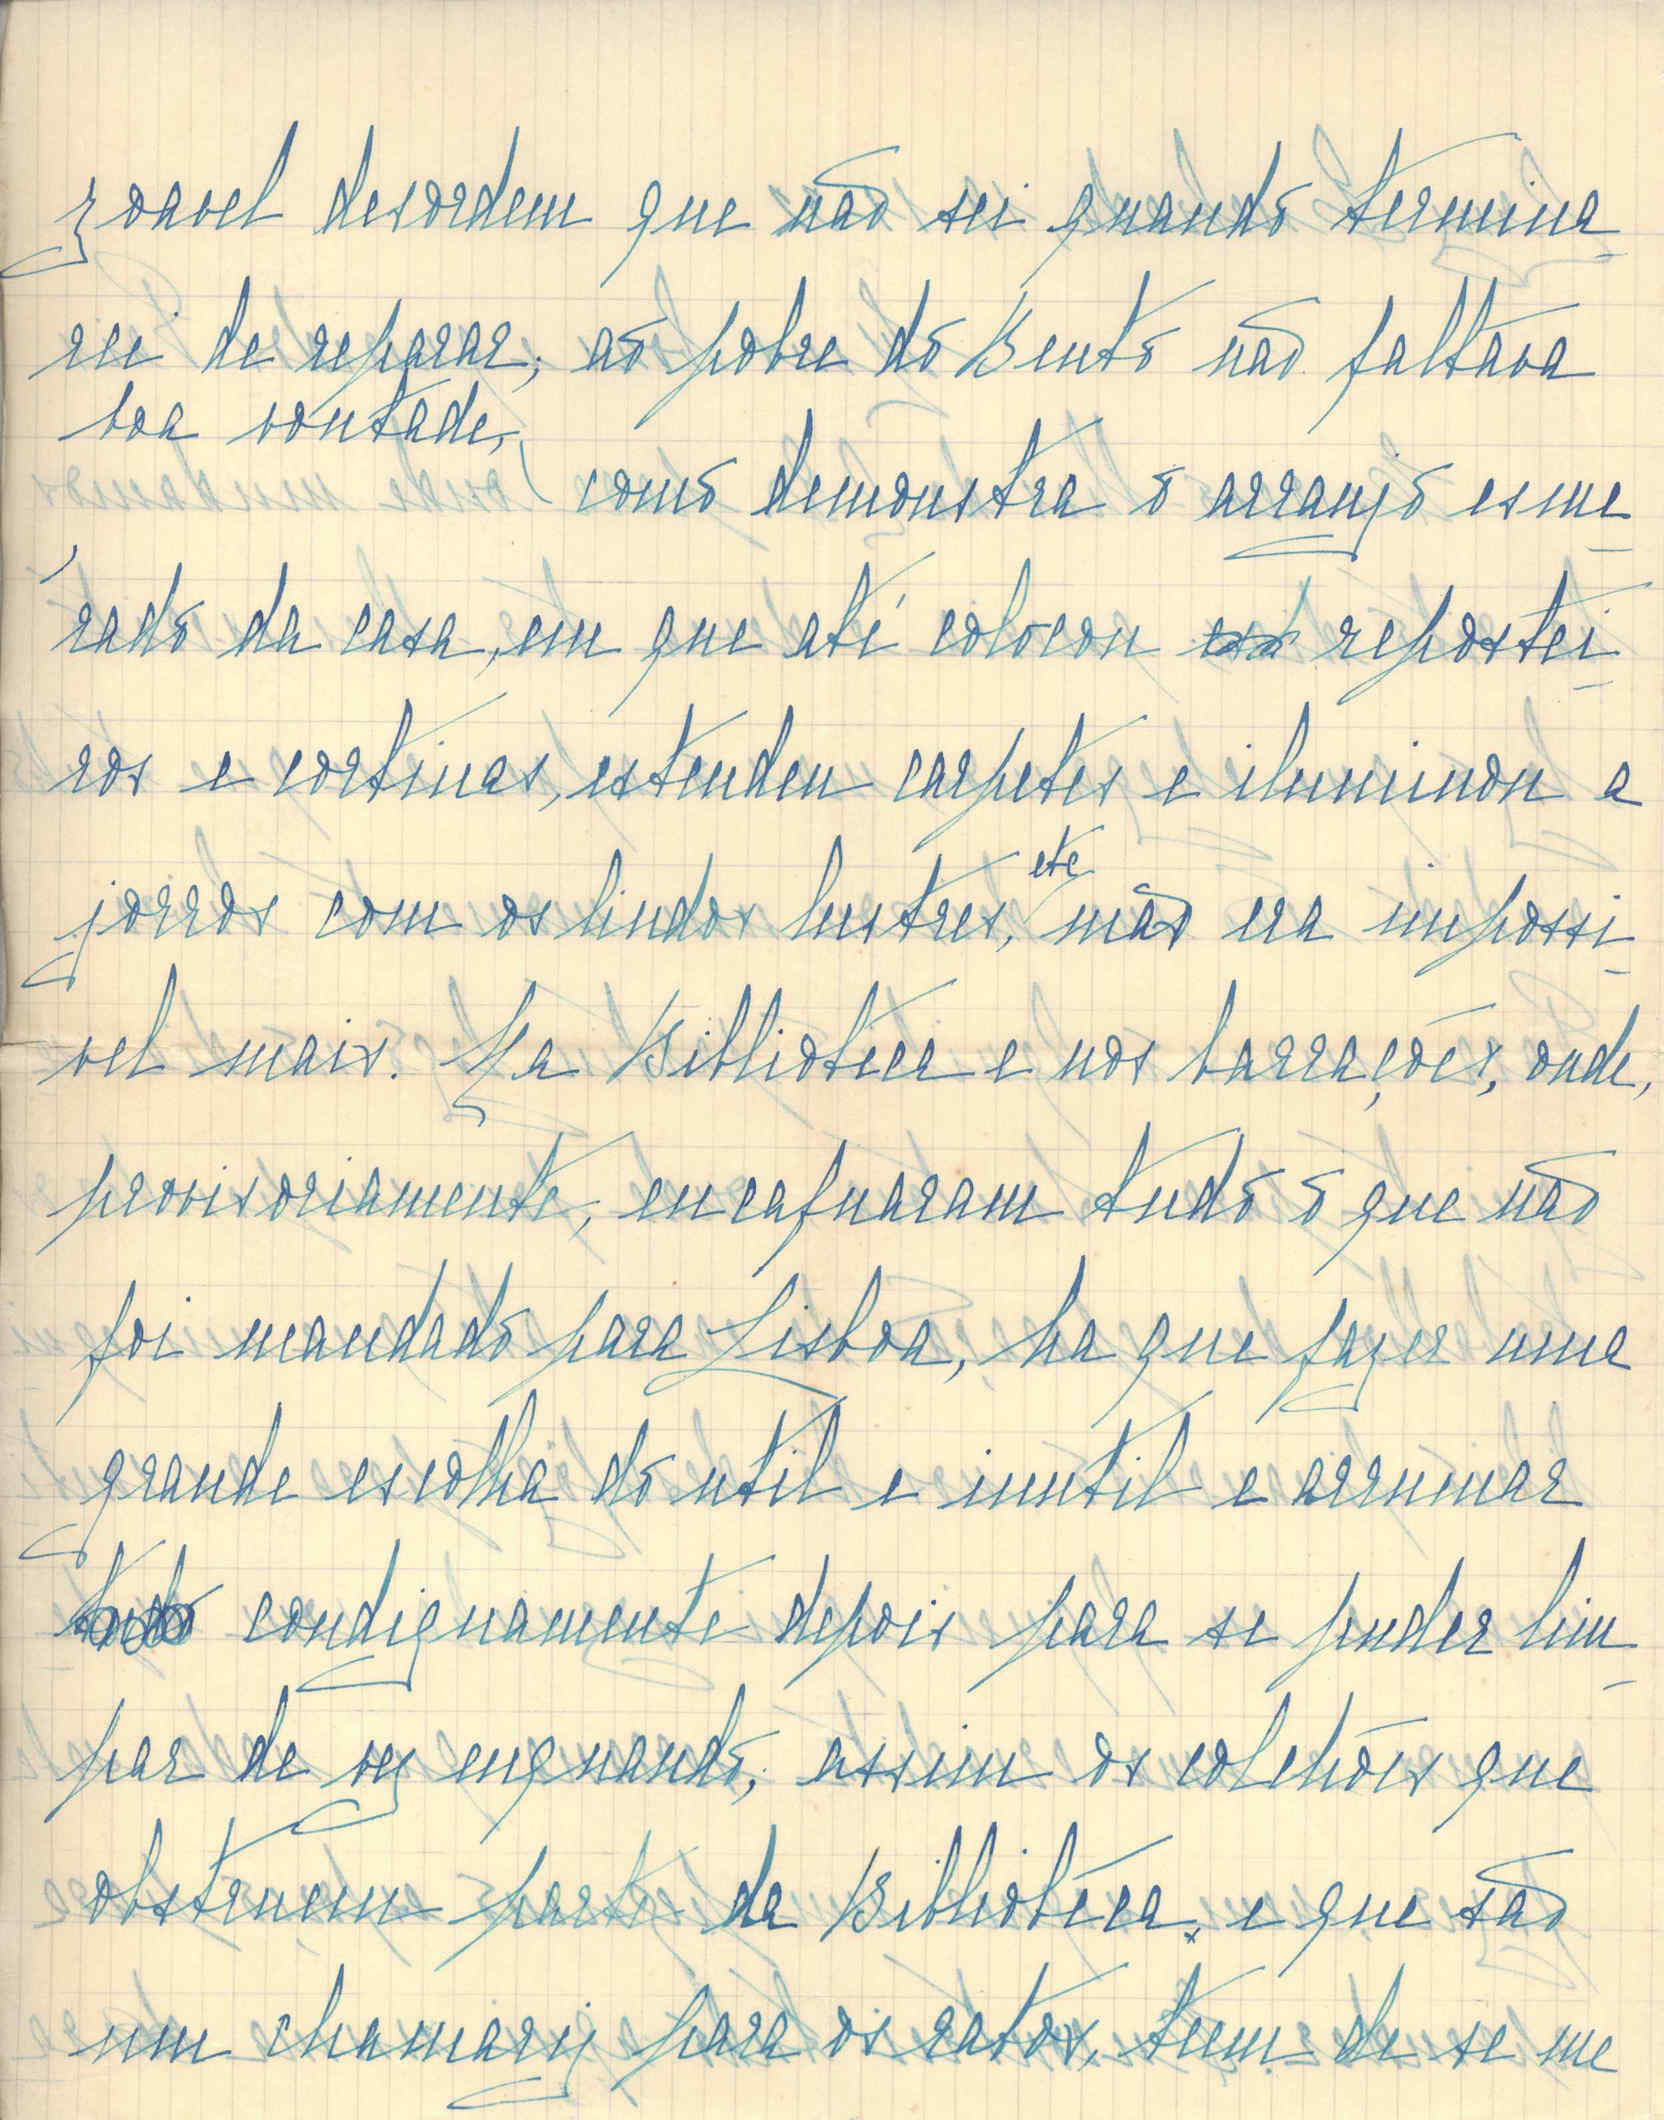 zoavel desordem que não sei quando termina_
rei de reparar; ao pobre do Bento não faltava
boa vontade,
como demonstra o arranjo esme_
rado da casa, em que até colocou repostei_
ros e cortinas, estendeu carpetes e iluminou a
jorros com os lindos lustres, etc não era impossi_
vel mais. Na Biblioteca e nos barracões, onde,
provisoriamente, encafuaram tudo o que não
foi mandado para Lisboa, ha que fazer uma
grande escolha do util e inutil e arrumar
tudo condignamente depois para se puder lim_
par de vez enquando; assim os colchões que
obstruem parte da Biblioteca, e que são
um chamariz para os ratos, teem de se me